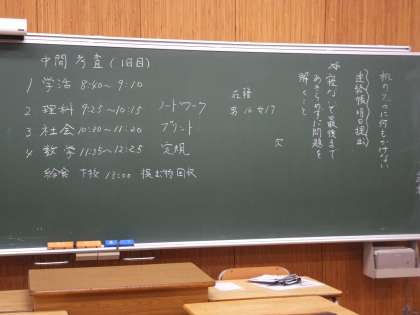 中間考査(1日目)
1 学活 8:40~9:10
2 理科 9:25~10:15 ノート・ワーク
3 社会 10:30~11:20 プリント
4 数学 11:35~12:25 定規
給食 下校 13:00 提出物回収
在籍
男16 女17
欠
机の上に何もおかない
連絡帳明日提出
☆寝ないで最後まで
あきらめずに問題を
解くこと